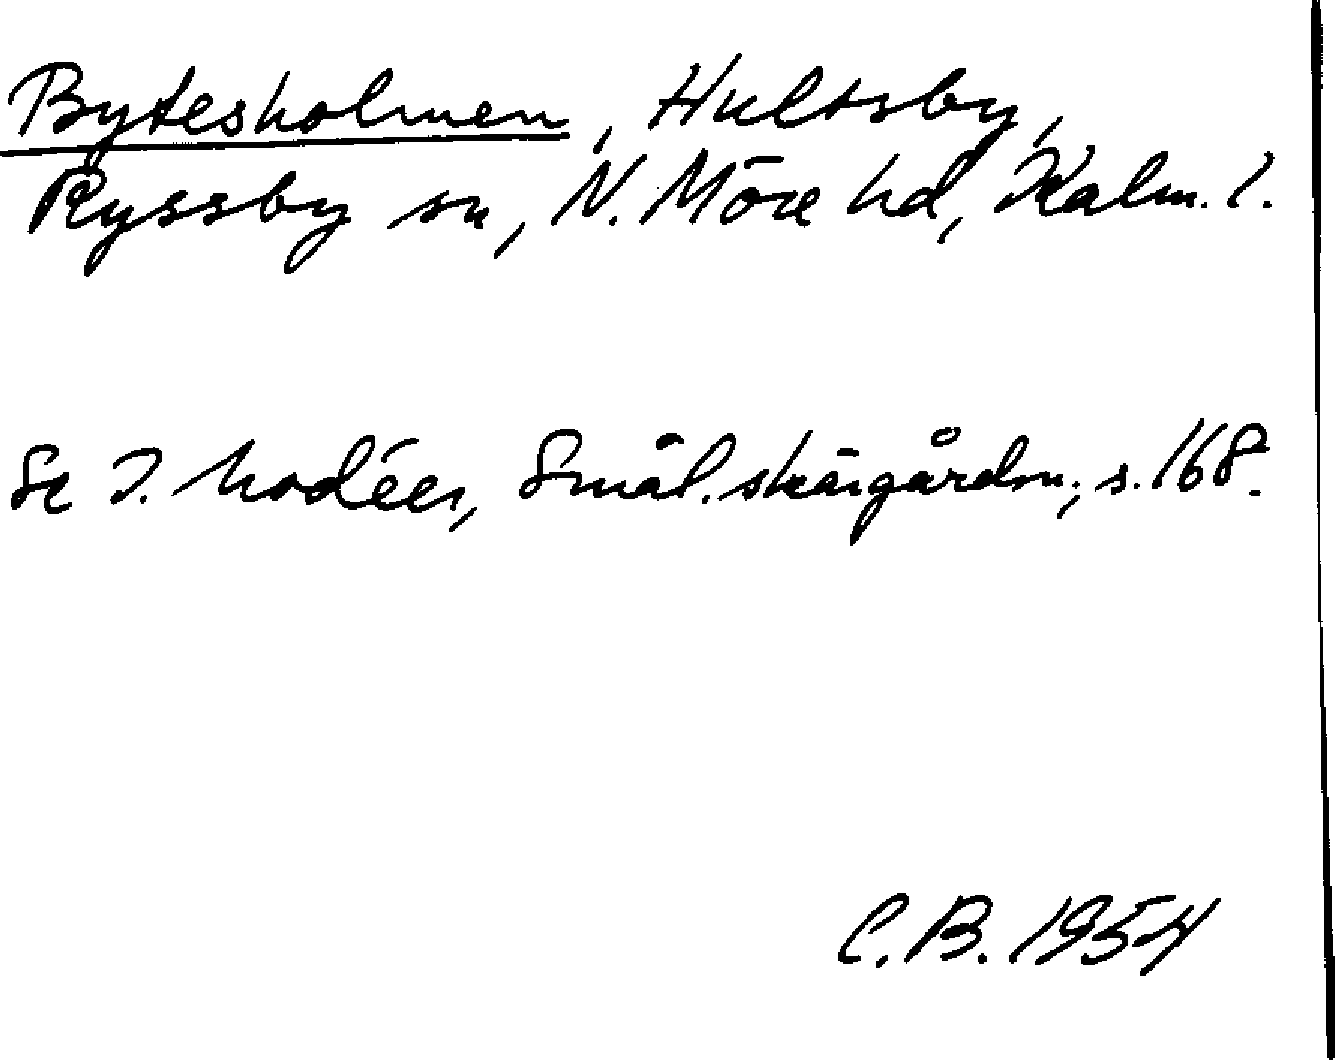 Bytesholmen, Hultsby,
Ryssby sn, N. Möre hd, Kalm. l.
Se I. Modéer, Smål. skärgårdsn., s. 168.
C.B. 1954